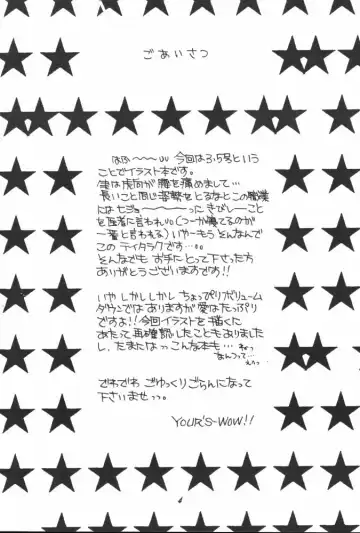 ごあいさつ
はぃ〜〜〜〜vv 今回は3.5号という
ことでイラスト本です。
実は虎向が腰を痛めまして…
長いこと同じ姿勢をとるなとこの職業
には
を医者に言われvv(つーか寝てるのが
一番と言われる)いやーもうそんなんで
このテイタラクです…。。
そんなでも お手にとって下さった方
ありがとうございますです!!
いや しかししかし ちょっぴりボリューム
ダウンではありますが愛はたっぷり
ですよ!!今回イラストを描くに
あたって再確認したこともありました
し、たまにはっこんな本も…
なんつって…
でわでわ ごゆっくりごらんになって
下さいませっっ。
YOUR'S-WOW!!
4